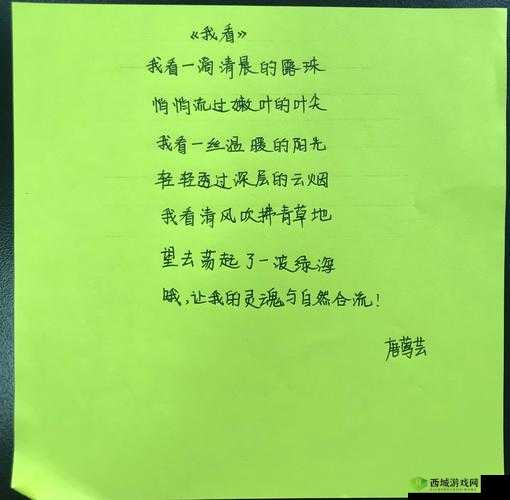 《我看》
我看一滴清晨的露珠
悄悄流过嫩叶的叶尖
我看一丝温暖的阳光
轻轻透过深层的云烟
我看清风吹拂青草地
望去荡起了一波绿海
哦，让我的灵魂与自然合流！
唐莺芸
西城游戏网